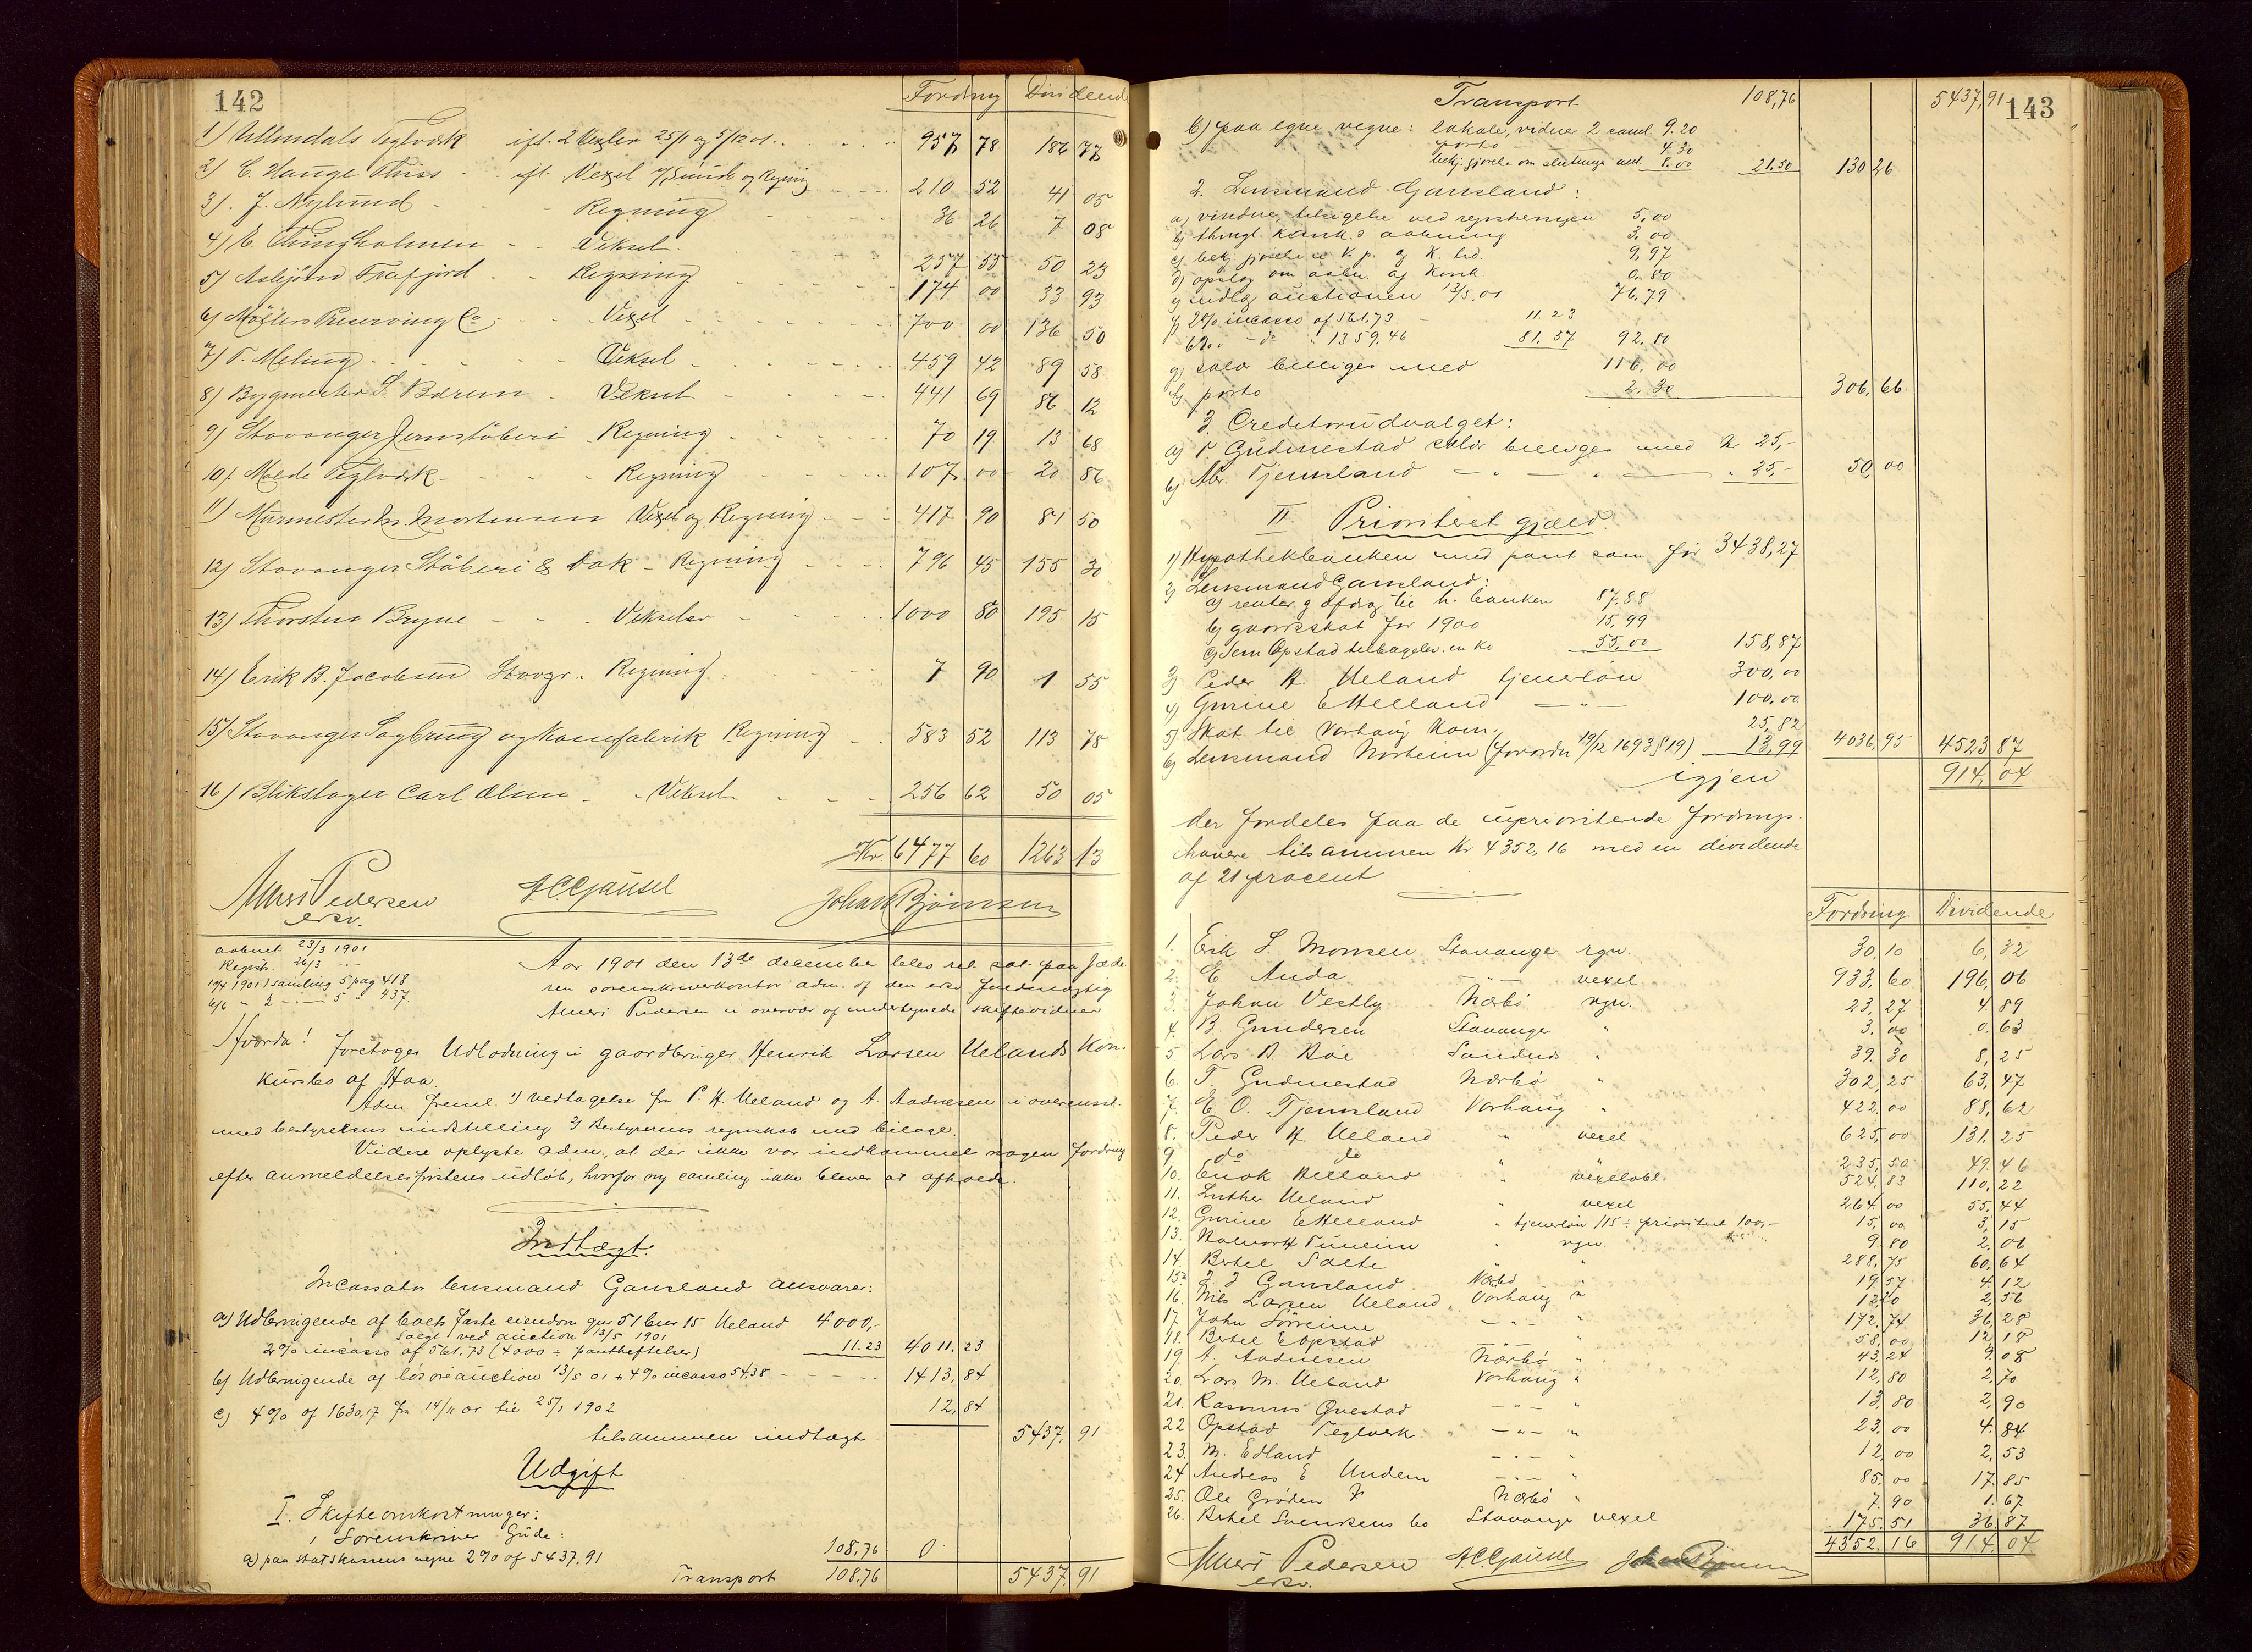 142
Fordring Dividende
1) Teglværk ifl. 2 Vexler 25/1 og 5/12 01. 957 78 186 77
2) C. Hauge Thiis - ifl. Vexel og Regning 210 52 41 05
3) J. Nylund - Regning 36 26 7 08
4) E. Thingholmen - Veksel. 257 55 50 23
5) Asbjörn Frafjord - Regning 174 00 33 93
6) Möllers Preserving Co - Vexel 700 00 136 50
7) T. Meling - Veksel 459 42 89 58
8) Bygmester S. Bærem - Veksel 441 69 86 12
9) Stavanger Jernstöberi Regning 70 19 13 68
10) Molde Teglværk - Regning 107 00 20 86
11) Murmester Mortensen Vexel og Regning 417 90 81 50
12) Stavanger Stöberi & Dok - Regning 796 45 155 30
13) Thorsten Bryne - Veksler 1000 80 195 15
14) Erik B. Jacobsen Stavgr. Regning 7 90 1 55
15) Stavanger Sagbrug og Kassefabrik Regning 583 52 113 78
16) Blikslager Carl Olsen - Veksel 256 62 50 05
Kr. 6477 60 1263 13
Pedersen A C Gausel Johan Bjönsen
erv.
aabnet 23/3 1901
Registr. 26/3 -
10/4 1901 1 samling 5 pag 418
6/6 " 2 - " - 5 " 437.
Aar 1901 den 13de december blev ret sat paa Jæde-
ren sorenskriverkontor adm. af den edsv. fuldmægtig
Pedersen i overvær af undertegnede skiftevidner
Hvorda!
Foretoges Udlodning i gaardbruger Henrik Larsen Uelands Kon-
kursbo af Haa.
Adm. freml. 1) vedtagelse fra P. H. Ueland og A. Aadnesen i overensst.
med bestyrelsens indstilling 2) Bestyrerens regnskab med bilage.
Videre oplyste adm., at der ikke var indkommet nogen fordring
efter anmeldelsesfristens udløb, hvorfor ny samling ikke blever at afholde.
Indtægt.
Incassator lensmand Gausland ansvarer:
a) Udbringende af boets faste eiendom gnr 51 bnr 15 Ueland 4000,-
solgt ved auction 13/5 1901
2% incasso af 561,73 (4000 ÷ pantheftelser) 11.23 4011.23
b) Udbringende af løsøreauction 13/5 01 + 4% incasso 54,38 - 1413,84
c) 4% af 1630,17 fra 14/11 01 til 25/1 1902 12,84
tilsammen indtægt 5437.91
Udgift
I. Skifteomkostninger:
1 Sorenskriver Gude:
a) paa statskassens vegne 2% af 5437.91 108,76
Transport 108,76 5437.91
143
Transport 108,76 5437,91
b) paa egne vegne: lokale, vidner 2 saml. 9.20
porto - 4.30
bekj.gjørelse om slutninge 8.00 21.50 130 26
2. Lensmand Gausland:
a) vidner, tilsigelse ved registreringen 5,00
b) thingl. konk.s aabning 3.00
c) bekj.gjørelse i V. p. og K. tid. 9,97
d) opslag om aabn. af Konk 0.80
e) udlæg auctionen 13/5.01 76.79
f) 2% incasso af 561.73 - 11.23
6% - do " 1359.46 81.57 92.80
g) salær billiges med 116,00
h) porto 2.30 306,66
3. Creditorudvalget:
a) T. Gudmestad salær billiges med Kr 25,-
b) Abr. Tjemsland - " - " - " 25,- 50,00
II Prioriteret gjæld.
1) Hypothekbanken med pant som før 3438,27
2) Lensmand Gausland:
a) renter og afdrag til h. banken 87.88
b) gaardsskat for 1900 15,99
c) Sem Opstad tilbagelev. en ko 55,00 158,87
3) Peder H. Ueland tjenerløn 300,00
4) Gurine E Helland - " - 100,00
5) Skat til Varhaug Kom. 25,82
6) Lensmand Norheim (forordn 19/12 1693 § 19) 13,99 4036,95 4523 87
igjen 914,04
der fordeles paa de uprioriterede fordrings-
havere tilsammen Kr 4352,16 med en dividende
af 21 procent
Fordring Dividende
1. Erik S. Monsen Stavanger rgn. 30,10 6,32
2. E Auda - " - vexel 933,60 196,06
3. Johan Vestly Nærbö rgn. 23,27 4.89
4. B. Gundersen Stavanger " 3.00 0.63
5. Lars B. Böe Sandnes " 39.30 8,25
6. T. Gudmestad Nærbö " 302,25 63,47
7. E. O. Tjemsland Varhaug " 422.00 88,62
8. Peder H. Ueland " vexel 625,00 131.25
9 do do " " 235,50 49.46
10. Enok Helland " vexelobl. 524,83 110,22
11. Luther Ueland " vexel 264.00 55.44
12. Gurine E Helland " tjenerløn 115 ÷ prioritet 100,- 15,00 3,15
13. Tuneim " rgn. 9.80 2.06
14. Bertel Salte " " 288,75 60,64
15. J. J Gausland Nærbö " 19,57 4.12
16. Nils Larsen Ueland, Varhaug " 12,20 2,56
17. John Sörreime - " - " 172.74 36,28
18. Bertel E Opstad - " - " 58,00 12,18
19. A. Aadnesen Nærbö " 43,24 9.08
20. Lars M. Ueland Varhaug " 12,80 2,70
21. Rasmus Questad - " - " 13,80 2,90
22 Opstad Teglverk - " - " 23.00 4.84
23. M. Edland - " - " 12,00 2,53
24 Andreas E Undem - " - " 85.00 17.85
25. Ole Gröden Nærbö " 7.90 1.67
26. Bertel Svensens bo Stavanger vexel 175.51 36,87
4352.16 914,04
Pedersen A C Gausel
edsv.